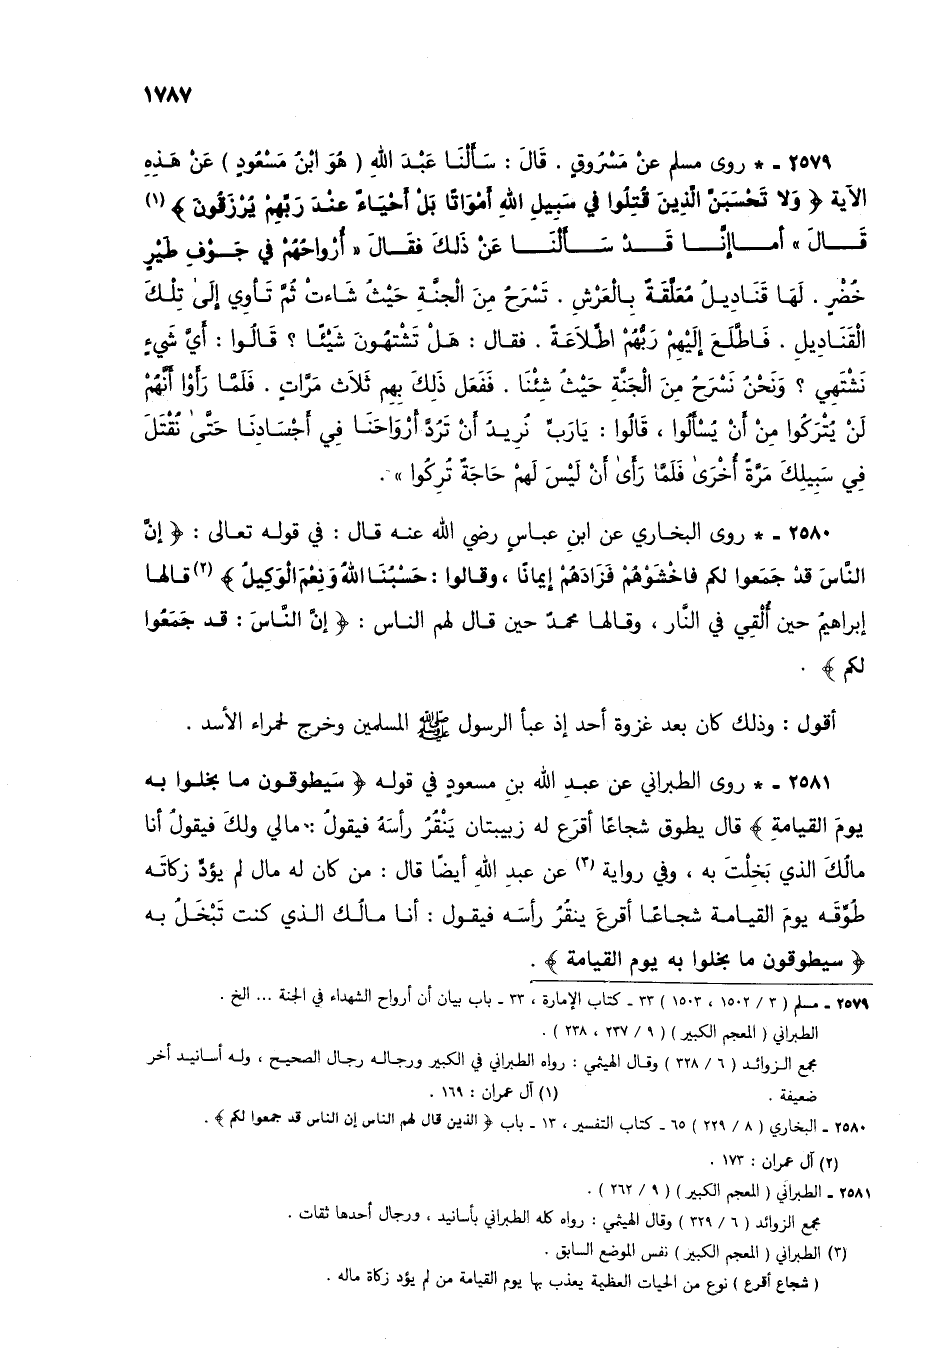 ١٧٨٧
٢٥٧٩ ـ * روى مسلم عنْ مَسْرُوقٍ . قَالَ : سَأَلْنَا عَبْدَ اللهِ ( هُوَ ابْنُ مَسْعُودٍ ) عَنْ هَذِهِ
الآية ﴿ وَلا تَحْسَبَنَّ الَّذِينَ قُتِلُوا في سَبِيلِ اللهِ أَمْوَاتًا بَلْ أَحْيَاءٌ عنْدَ رَبِّهِمْ يُرْزَقُونَ ﴾ (١)
قَالَ » أما إنَّا قَدْ سَأَلْنَا عَنْ ذَلِكَ فقَالَ « أَرْوَاحُهُمْ في جَوْفِ طَيْرٍ
خُضْرٍ . لَهَا قَنَادِيلُ مُعَلَّقَةٌ بِالعَرْشِ . تَسْرَحُ مِنَ الْجنَّةِ حَيْثُ شَاءتْ ثُمَّ تَأوِي إلَىٰ تِلْكَ
الْقَنَادِيلِ . فَاطَّلَعَ إلَيْهِمْ رَبُّهُمْ اطِّلَاعَةً . فقال : هَلْ تَشْتهُونَ شَيْئًا ؟ قَالُوا : أَيَّ شَيْءٍ
نَشْتَهِي ؟ وَنَحْنُ نَسْرَحُ مِنَ الْجَنَّةِ حَيْثُ شِئْنَا . فَفَعَل ذَلِكَ بِهِم ثَلَاثَ مَرَّاتٍ . فَلَمَّا رَأَوْا أَنَّهُمْ
لَنْ يُتْرَكُوا مِنْ أَنْ يُسْأَلُوا ، قَالُوا : يَارَبِّ نُرِيدُ أَنْ تَرُدَّ أَرْوَاحَنَا فِي أَجْسَادِنَا حَتَّىٰ نُقْتَلَ
فِي سَبِيلِكَ مَرَّةً أُخْرَىٰ فَلَمَّا رَأَىٰ أَنْ لَيْسَ لَهمْ حَاجَةٌ تُرِكُوا » .
٢٥٨٠ ـ * روى البخاري عن ابنِ عباسٍ رضي الله عنه قال : في قوله تعالى : ﴿ إنَّ
النَّاسَ قدْ جَمَعوا لكم فاخْشَوْهُمْ فَزَادَهُمْ إيمانًا ، وقالوا : حَسْبُنَا اللهُ وَنِعْمَ الْوَكِيلُ ﴾ (٢) قالها
إبراهيمُ حين أُلْقِي في النَّار ، وقالها محمدٌ حين قال لهم الناس : ﴿ إنَّ النَّاسَ : قد جَمَعُوا
لكم ﴾ .
أقول : وذلك كان بعد غزوة أحد إذ عبأ الرسول ﷺ المسلمين وخرج لحمراء الأسد .
٢٥٨١ ـ * روى الطبراني عن عبد الله بنِ مسعودٍ في قوله ﴿ سَيطوقون ما بخلوا به
يومَ القيامةِ ﴾ قال يطوق شجاعًا أقرَع له زبيبتان يَنْقُرُ رأسَهُ فيقولُ : مالي ولكَ فيقولُ أنا
مالُكَ الذي بَخِلْتَ به ، وفي رواية (٣) عن عبدِ اللهِ أيضًا قال : من كان له مال لم يؤدِّ زكاتَه
طُوِّقَه يومَ القيامة شجاعًا أقرعَ ينقُرُ رأسَه فيقول : أنا مالُك الذي كنت تَبْخَلُ به
﴿ سيطوقون ما بخلوا به يوم القيامة ﴾ .
٢٥٧٩ ـ مسلم ( ٣ / ١٥٠٢ ، ١٥٠٣ ) ٣٣ ـ كتاب الإمارة ، ٣٣ ـ باب بيان أن أرواح الشهداء في الجنة ... الخ .
الطبراني ( المعجم الكبير ) ( ٩ / ٢٣٧ ، ٢٣٨ ) .
مجمع الزوائد ( ٦ / ٣٢٨ ) وقال الهيثمي : رواه الطبراني في الكبير ورجاله رجال الصحيح ، وله أسانيد أخر
ضعيفة . (١) آل عمران : ١٦٩ .
٢٥٨٠ ـ البخاري ( ٨ / ٢٢٩ ) ٦٥ ـ كتاب التفسير ، ١٣ ـ باب ﴿ الذين قال لهم الناس إن الناس قد جمعوا لكم ﴾ .
(٢) آل عمران : ١٧٣ .
٢٥٨١ ـ الطبراني ( المعجم الكبير ) ( ٩ / ٢٦٢ ) .
مجمع الزوائد ( ٦ / ٣٢٩ ) وقال الهيثمي : رواه كله الطبراني بأسانيد ، ورجال أحدها ثقات .
(٣) الطبراني ( المعجم الكبير ) نفس الموضع السابق .
( شجاع أقرع ) نوع من الحيات العظيمة يعذب بها يوم القيامة من لم يؤد زكاة ماله .